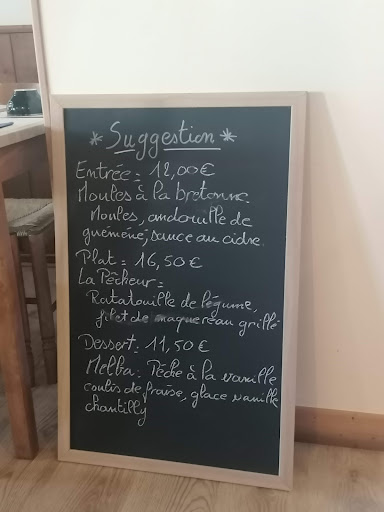 * Suggestion *
Entrée = 12,00€
Moules à la bretonne.
Moules, andouille de
guémené, sauce au cidre.
Plat = 16,50€
La Pêcheur =
Ratatouille de légume,
filet de maquereau grillé
Dessert: 11,50€
Melba: Pêche à la vanille
coulis de fraise, glace vanille
chantilly